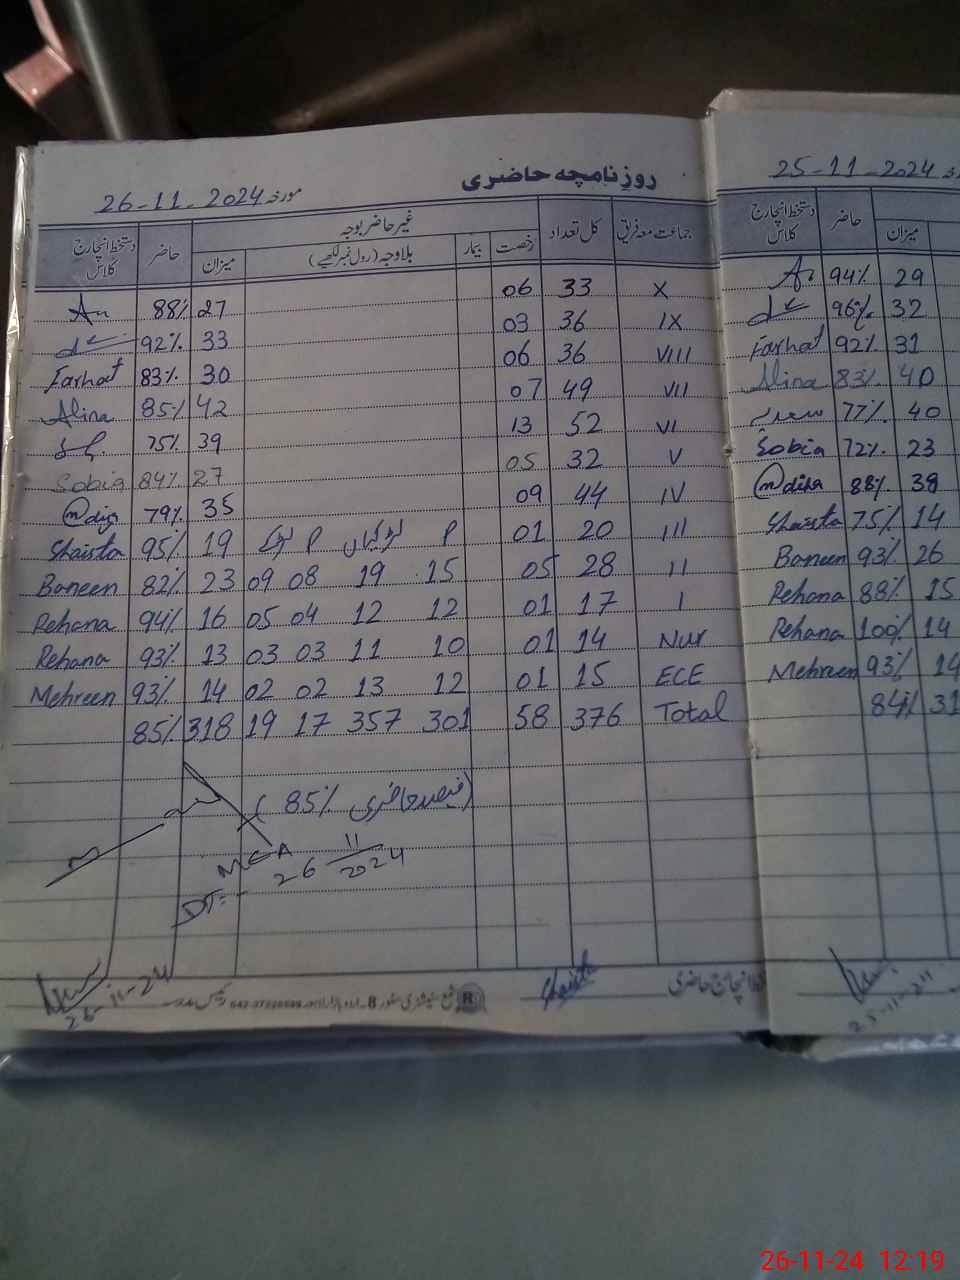 روزنامچہ حاضری
مورخہ 26-11-2024
جماعت معہ فریق کل تعداد رخصت بیمار غیر حاضر بوجہ بلاوجہ (رول نمبر لکھیے) میزان حاضر دستخط انچارج کلاس
X 33 06 27 88%
IX 36 03 33 92%
VIII 36 06 30 83% Farhat
VII 49 07 42 85% Alina
VI 52 13 39 75%
V 32 05 27 84% Sobia
IV 44 09 35 79%
III 20 01 P لڑکیاں P لڑکے 19 95% Shaista
II 28 05 15 19 08 09 23 82% Baneen
I 17 01 12 12 04 05 16 94% Rehana
Nur 14 01 10 11 03 03 13 93% Rehana
ECE 15 01 12 13 02 02 14 93% Mehreen
Total 376 58 301 357 17 19 318 85%
(فیصد حاضری 85%)
MEA
DT:- 26 11/2024
26-11-24
Shaista
انچارج حاضری
25-11-2024
میزان حاضر دستخط انچارج کلاس
29 94%
32 96%
31 92% Farhat
40 83% Alina
40 77% سعدیہ
23 72% Sobia
39 88%
14 75% Shaista
26 93% Baneen
15 88% Rehana
14 100% Rehana
14 93% Mehreen
31 84%
25-11-24
26-11-24 12:19